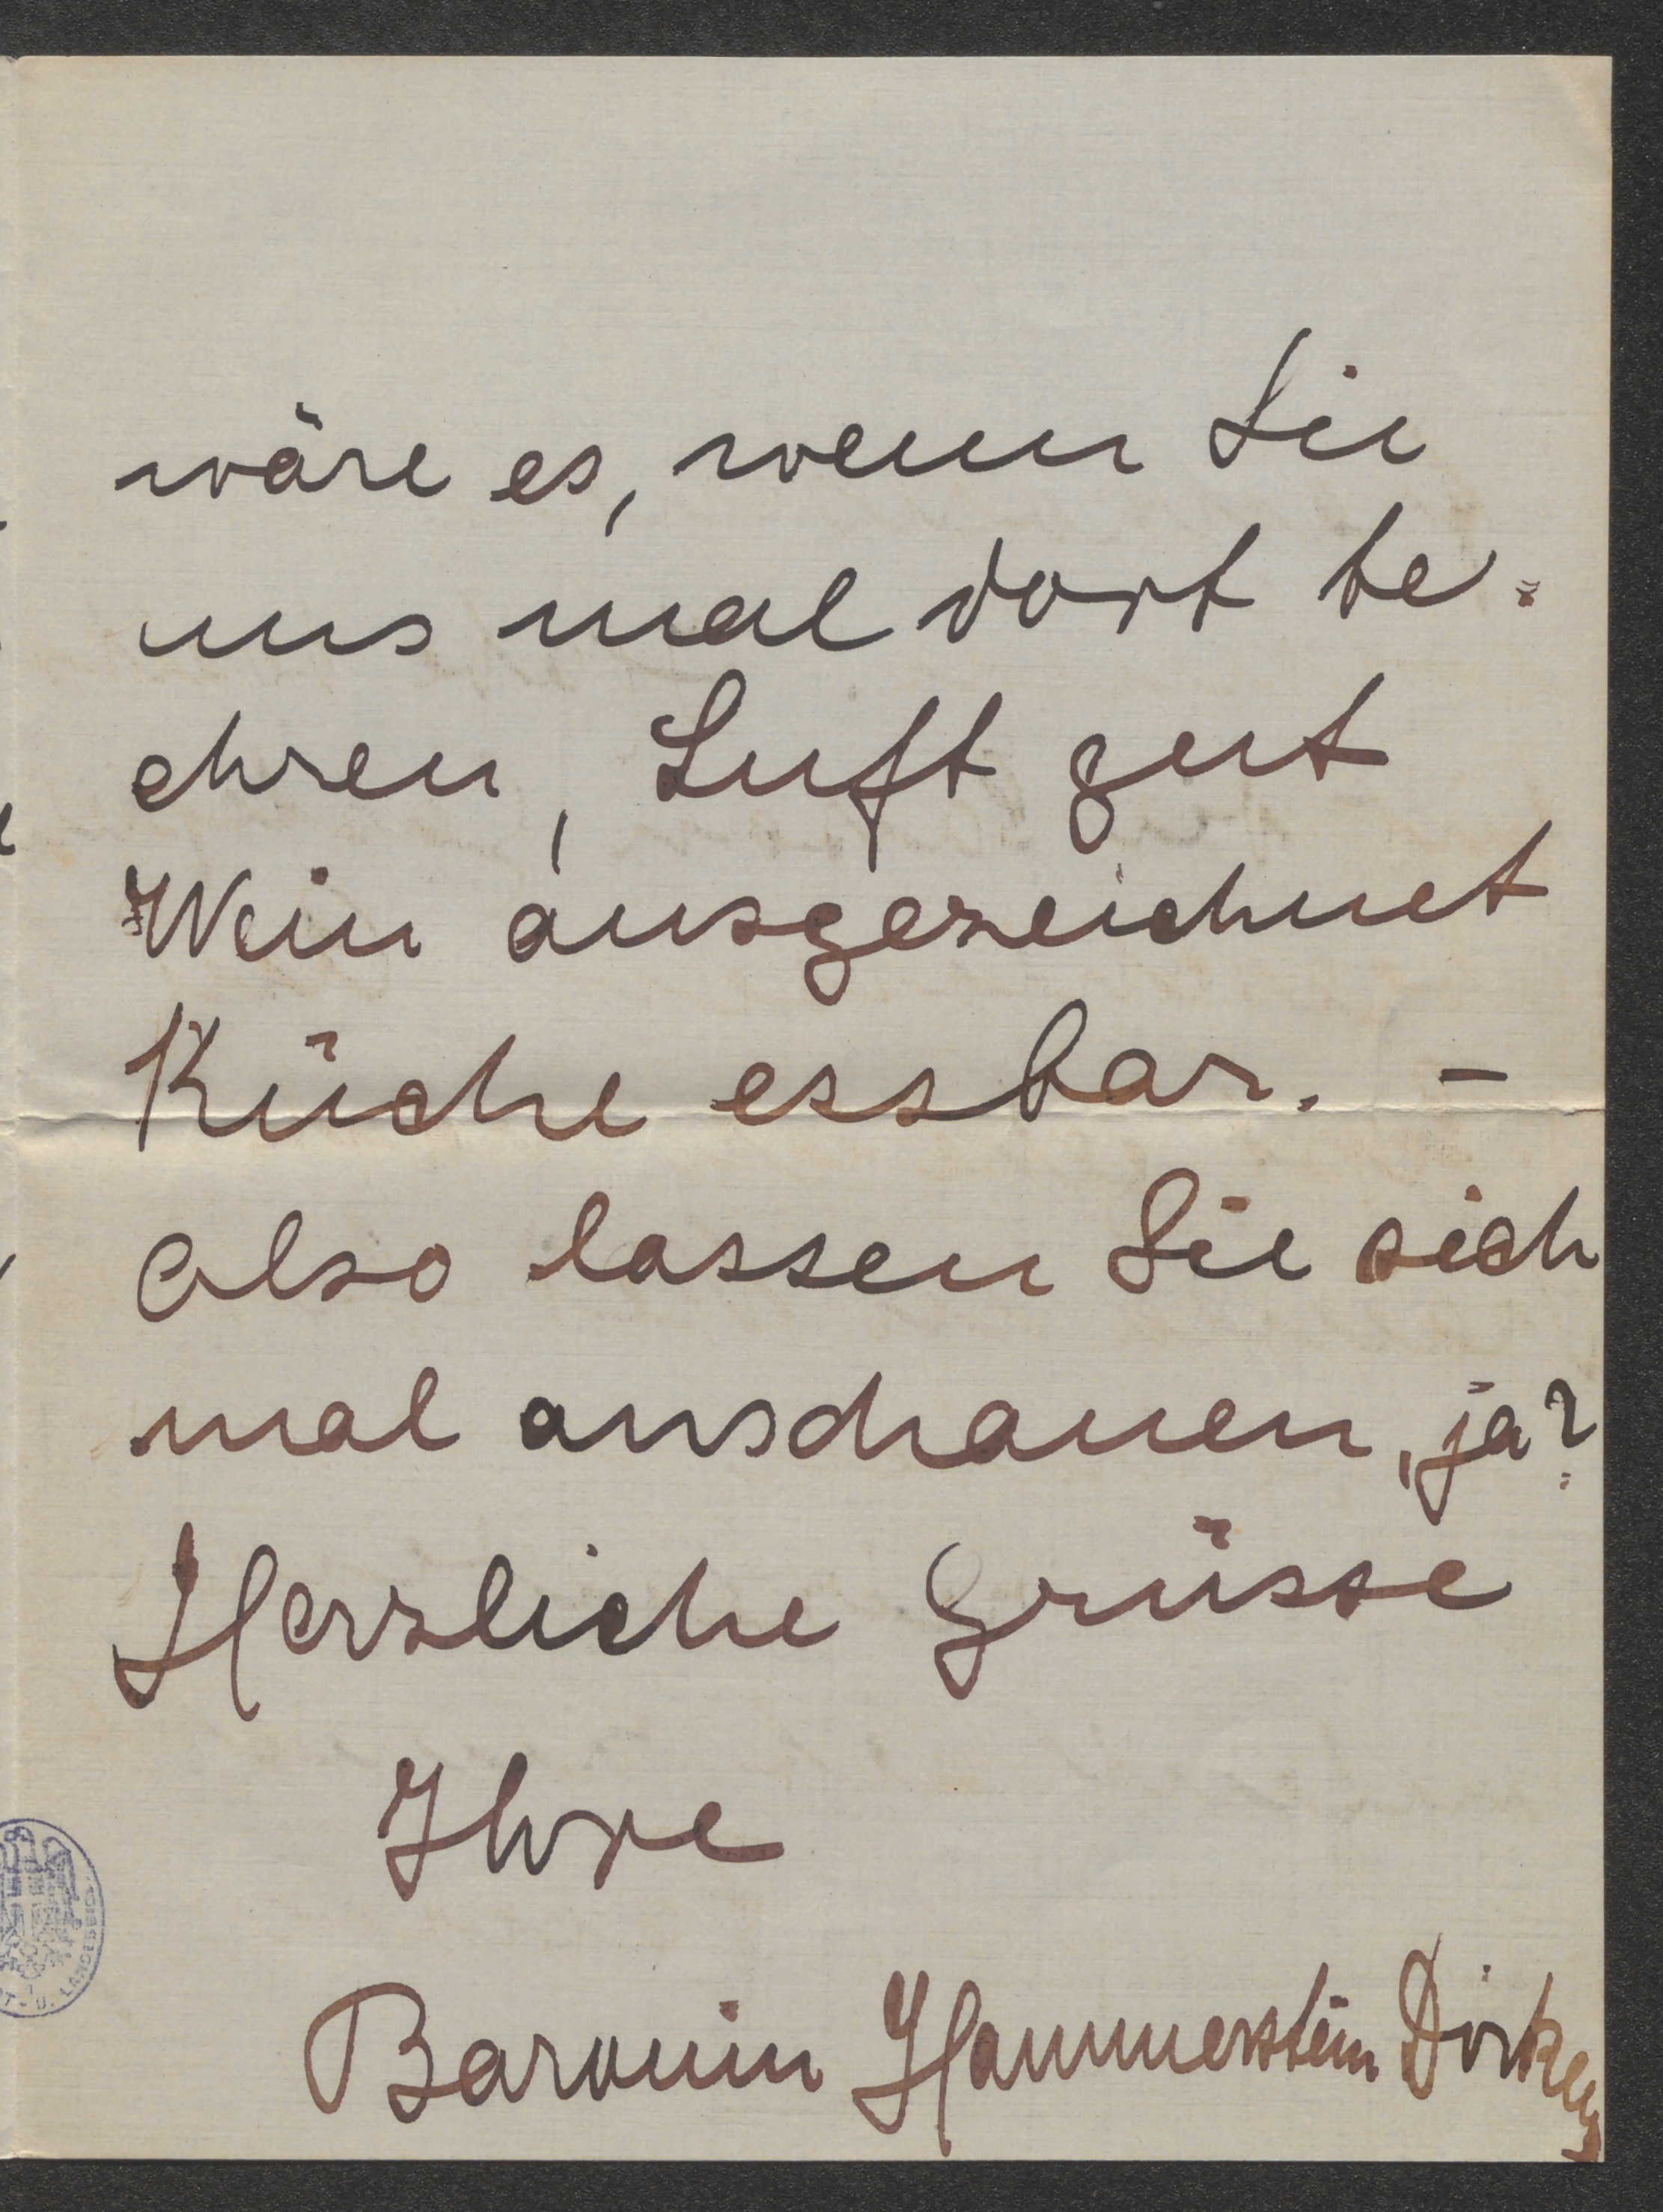 wäre es, wenn Sie
uns mal dort be=
ehren, Luft gut
Wein ausgezeichnet
Küche essbar. –
Also lassen Sie sich
mal anschauen, ja?
Herzliche Grüsse
Ihre
Baronin Hammerstein Dirkens